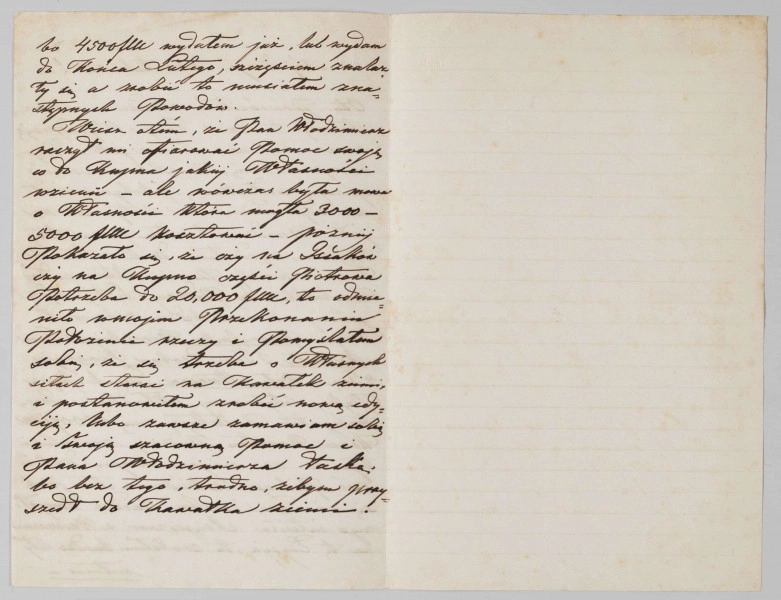 bo 4500 flM wydałem już, lub wydam
do Końca Lutego, szczęściem znalaz
ły się a zrobić to musiałem z na=
stępnych Powodów.
Wiesz o tém, że Pan Włodzimierz
raczył mi ofiarować Pomoc swoją
co do Kupna jakiej Własności
– ale wówczas była mowa
o Własności która mogła 3000–
5000 flM kosztować – później
Pokazało się, że czy na
czy na Kupno części Piotrowa
Potrzeba do 20,000 flM, to odmie=
niło w mojém Przekonaniu
Położenie rzeczy i Pomyślałem
sobie, że się trzeba o Własnych
siłach starać na Kawałek ziemi,
i postanowiłem zrobić nową edy=
ciją, lubo zawsze zamawiam sobie
i twoją szacowną Pomoc i
Pana Włodzimierza łaskę:
bo bez tego, trudno, żebym przy=
szedł do Kawałka ziemi.